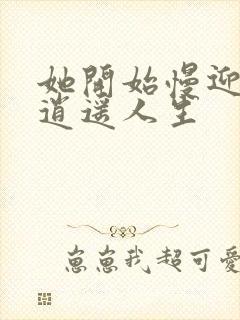 她開始慢迎
逍遥人生
崽崽我超可愛